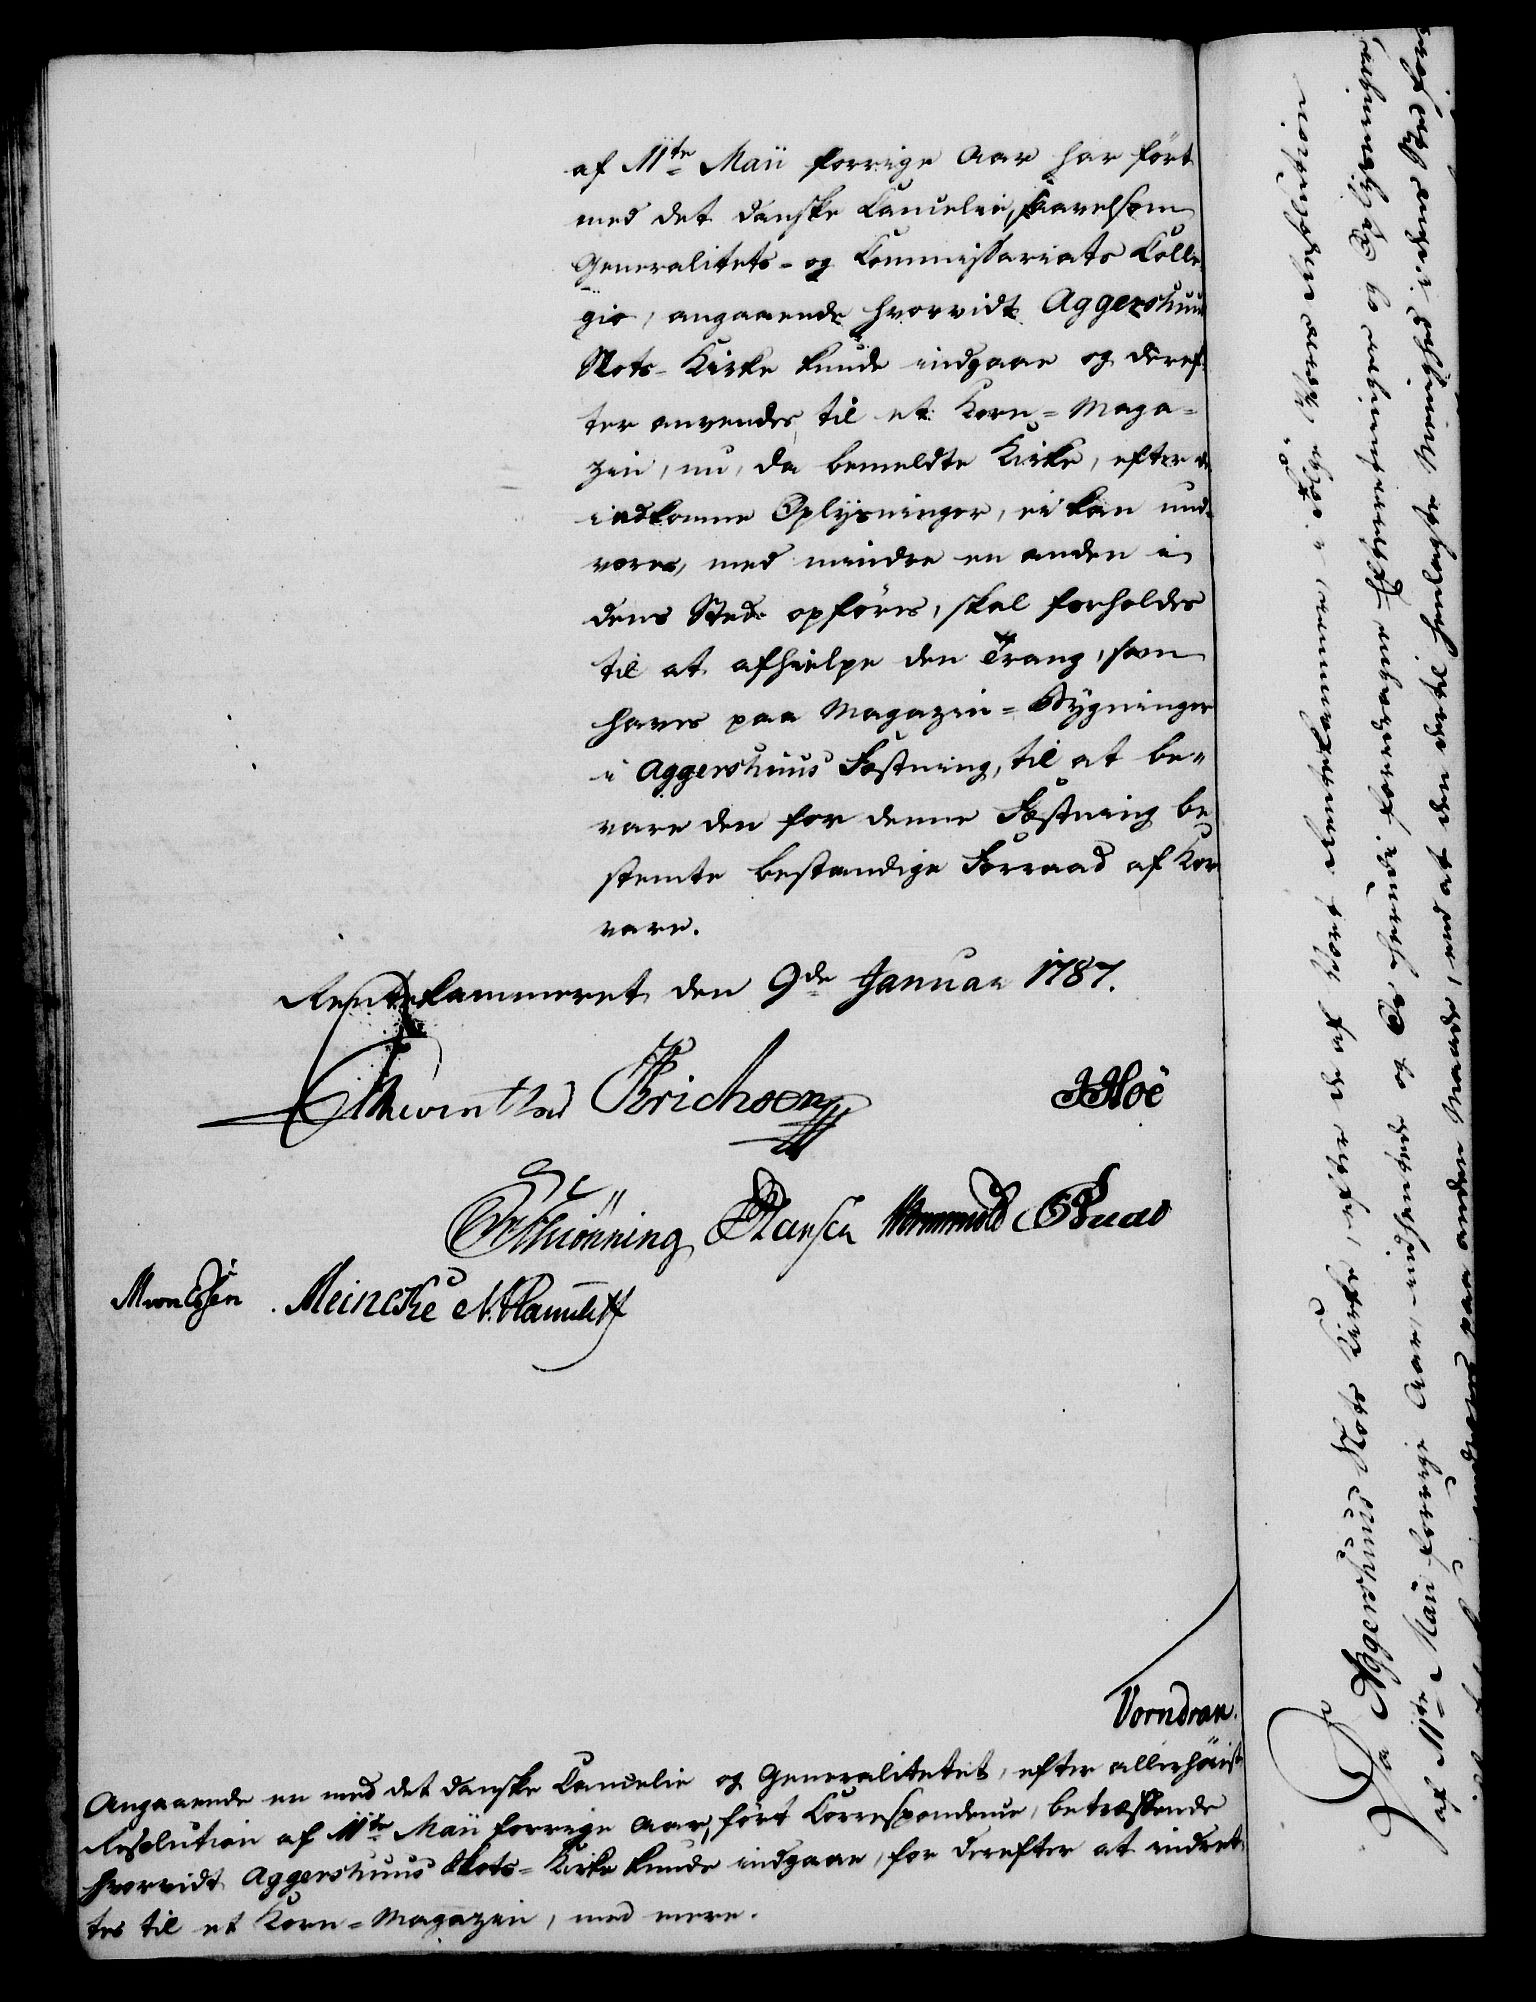 af 11te Maii forrige Aar har ført
med det danske Cancelie, saavelsom
Generalitets- og Commissariats Colle-
gio, angaaende hvorvidt Aggershuus
Slots-Kirke kunde indgaae og deref-
ter anvendes til et Korn-Maga-
zin, nu, da bemeldte Kirke, efter de
indkomne Oplysninger, ei kan und-
væres, med mindre en anden i
dens Sted opføres, skal forholdes
til at afhielpe den Trang, som
haves paa Magazin-Bygninger
i Aggershuus Fæstning, til at be-
vare den for denne Fæstning be-
stemte bestandige Forraad af Korn
vare.
Rentekammeret den 9de Januar 1787.
Erichsen JHoë
Schiönning Hansen Wormskiold
Meincke
Vorndran.
Angaaende en med det danske Cancelie og Generalitetet, efter allerhøiest
Resolution af 11te Maii forrige Aar, ført Correspondence, betræffende
hvorvidt Aggershuus Slots-Kirke kunde indgaae, for derefter at indret-
tes til et Korn-Magazin, med mere.
Da Aggershuus Slots Kirke, efter de af Vort Rentekammer, i Følge Vores Resolution
af 11te Maii forrige Aar, indhentede og Os herudi foredragne Efterretninger og Oplysninger,
paa anden Maade, end at den dertil henlagte Menighed i dens Sted for-